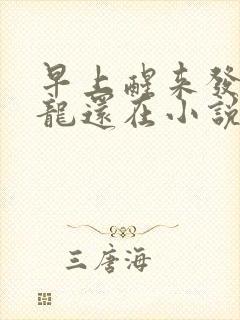 早上醒來發
龍還在小說
三唐海